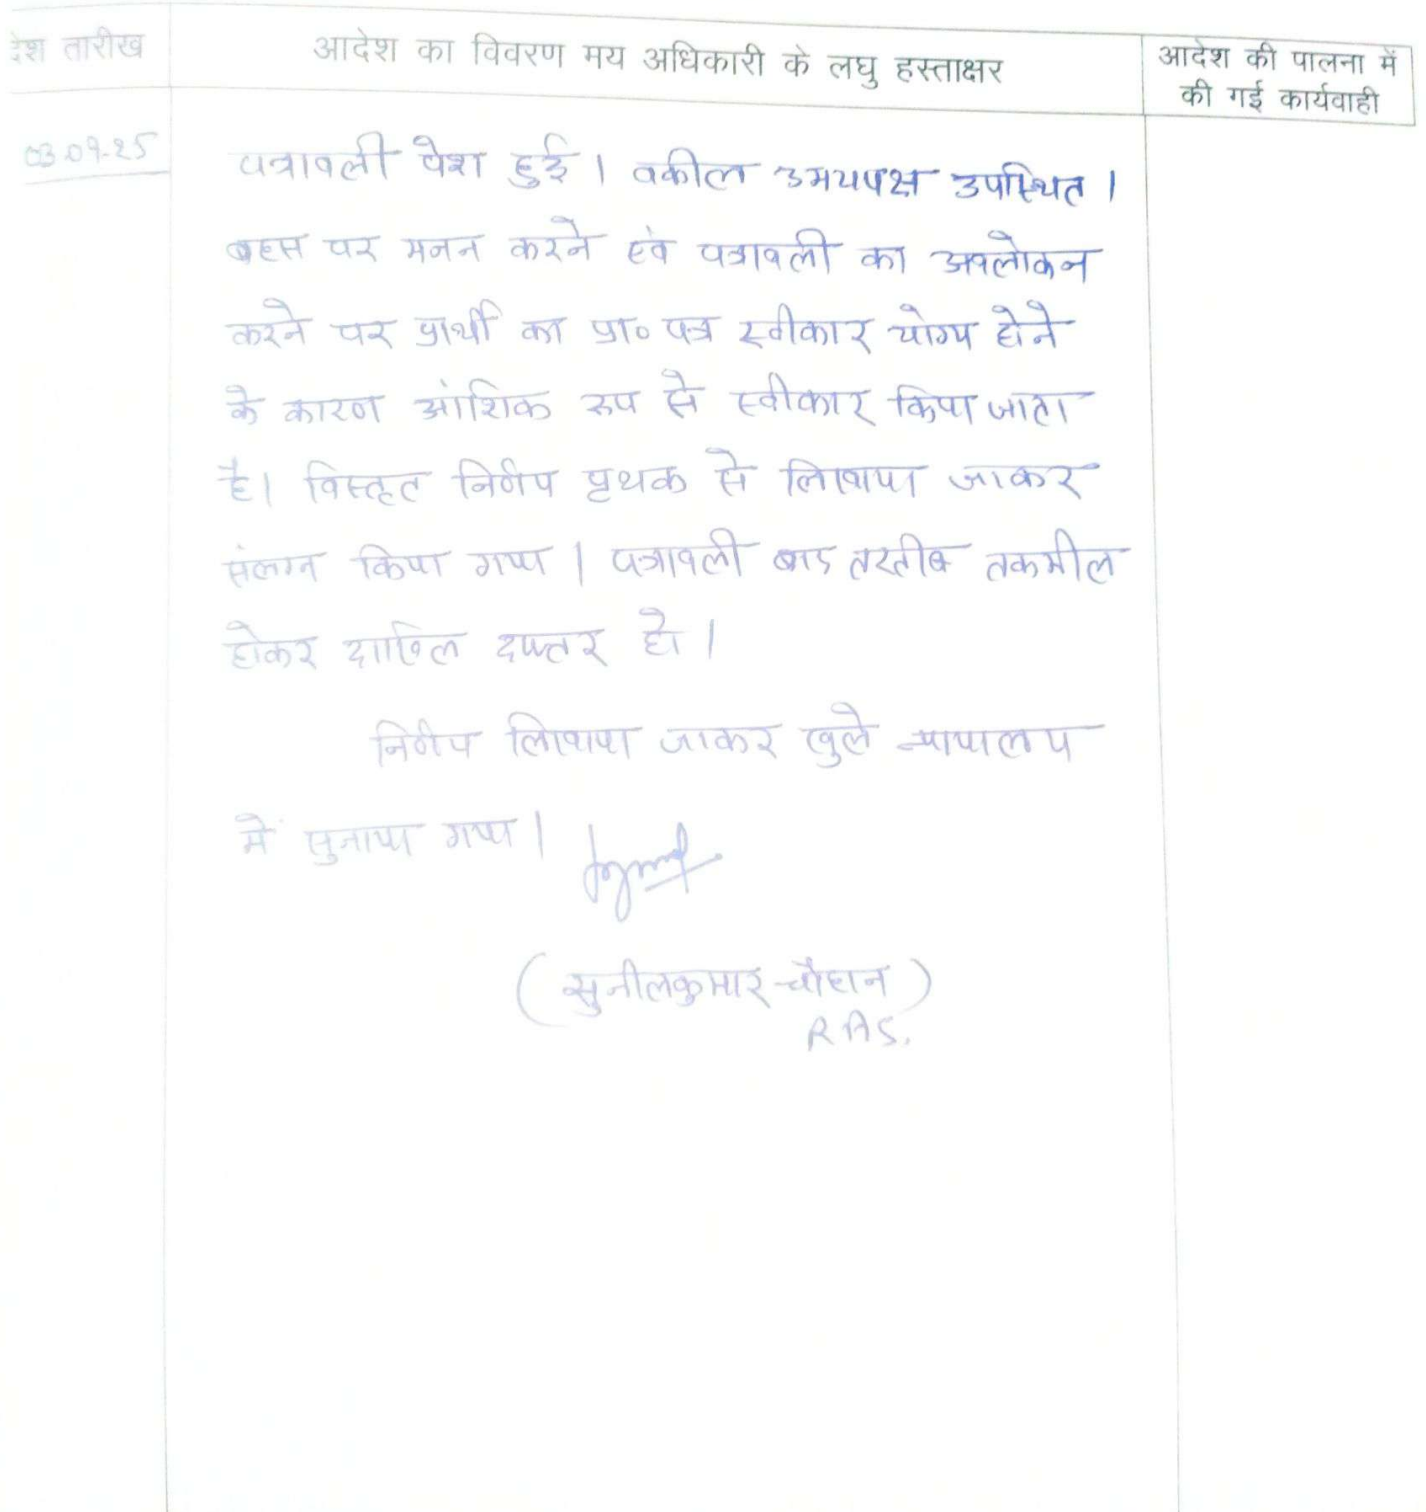 देश तारीख
आदेश का विवरण मय अधिकारी के लघु हस्ताक्षर
आदेश की पालना में
की गई कार्यवाही
03.09.25
पत्रावली पेश हुई। वकील उभयपक्ष उपस्थित।
बहस पर मनन करने एवं पत्रावली का अवलोकन
करने पर प्रार्थी का प्रा० पत्र स्वीकार योग्य होने
के कारण आंशिक रूप से स्वीकार किया जाता
है। विस्तृत निर्णय पृथक से लिखाया जाकर
संलग्न किया गया। पत्रावली बाद तरतीब तकमील
होकर दाखिल दफ्तर हो।
निर्णय लिखाया जाकर खुले न्यायालय
में सुनाया गया।
(सुनील कुमार चौहान)
RAS.